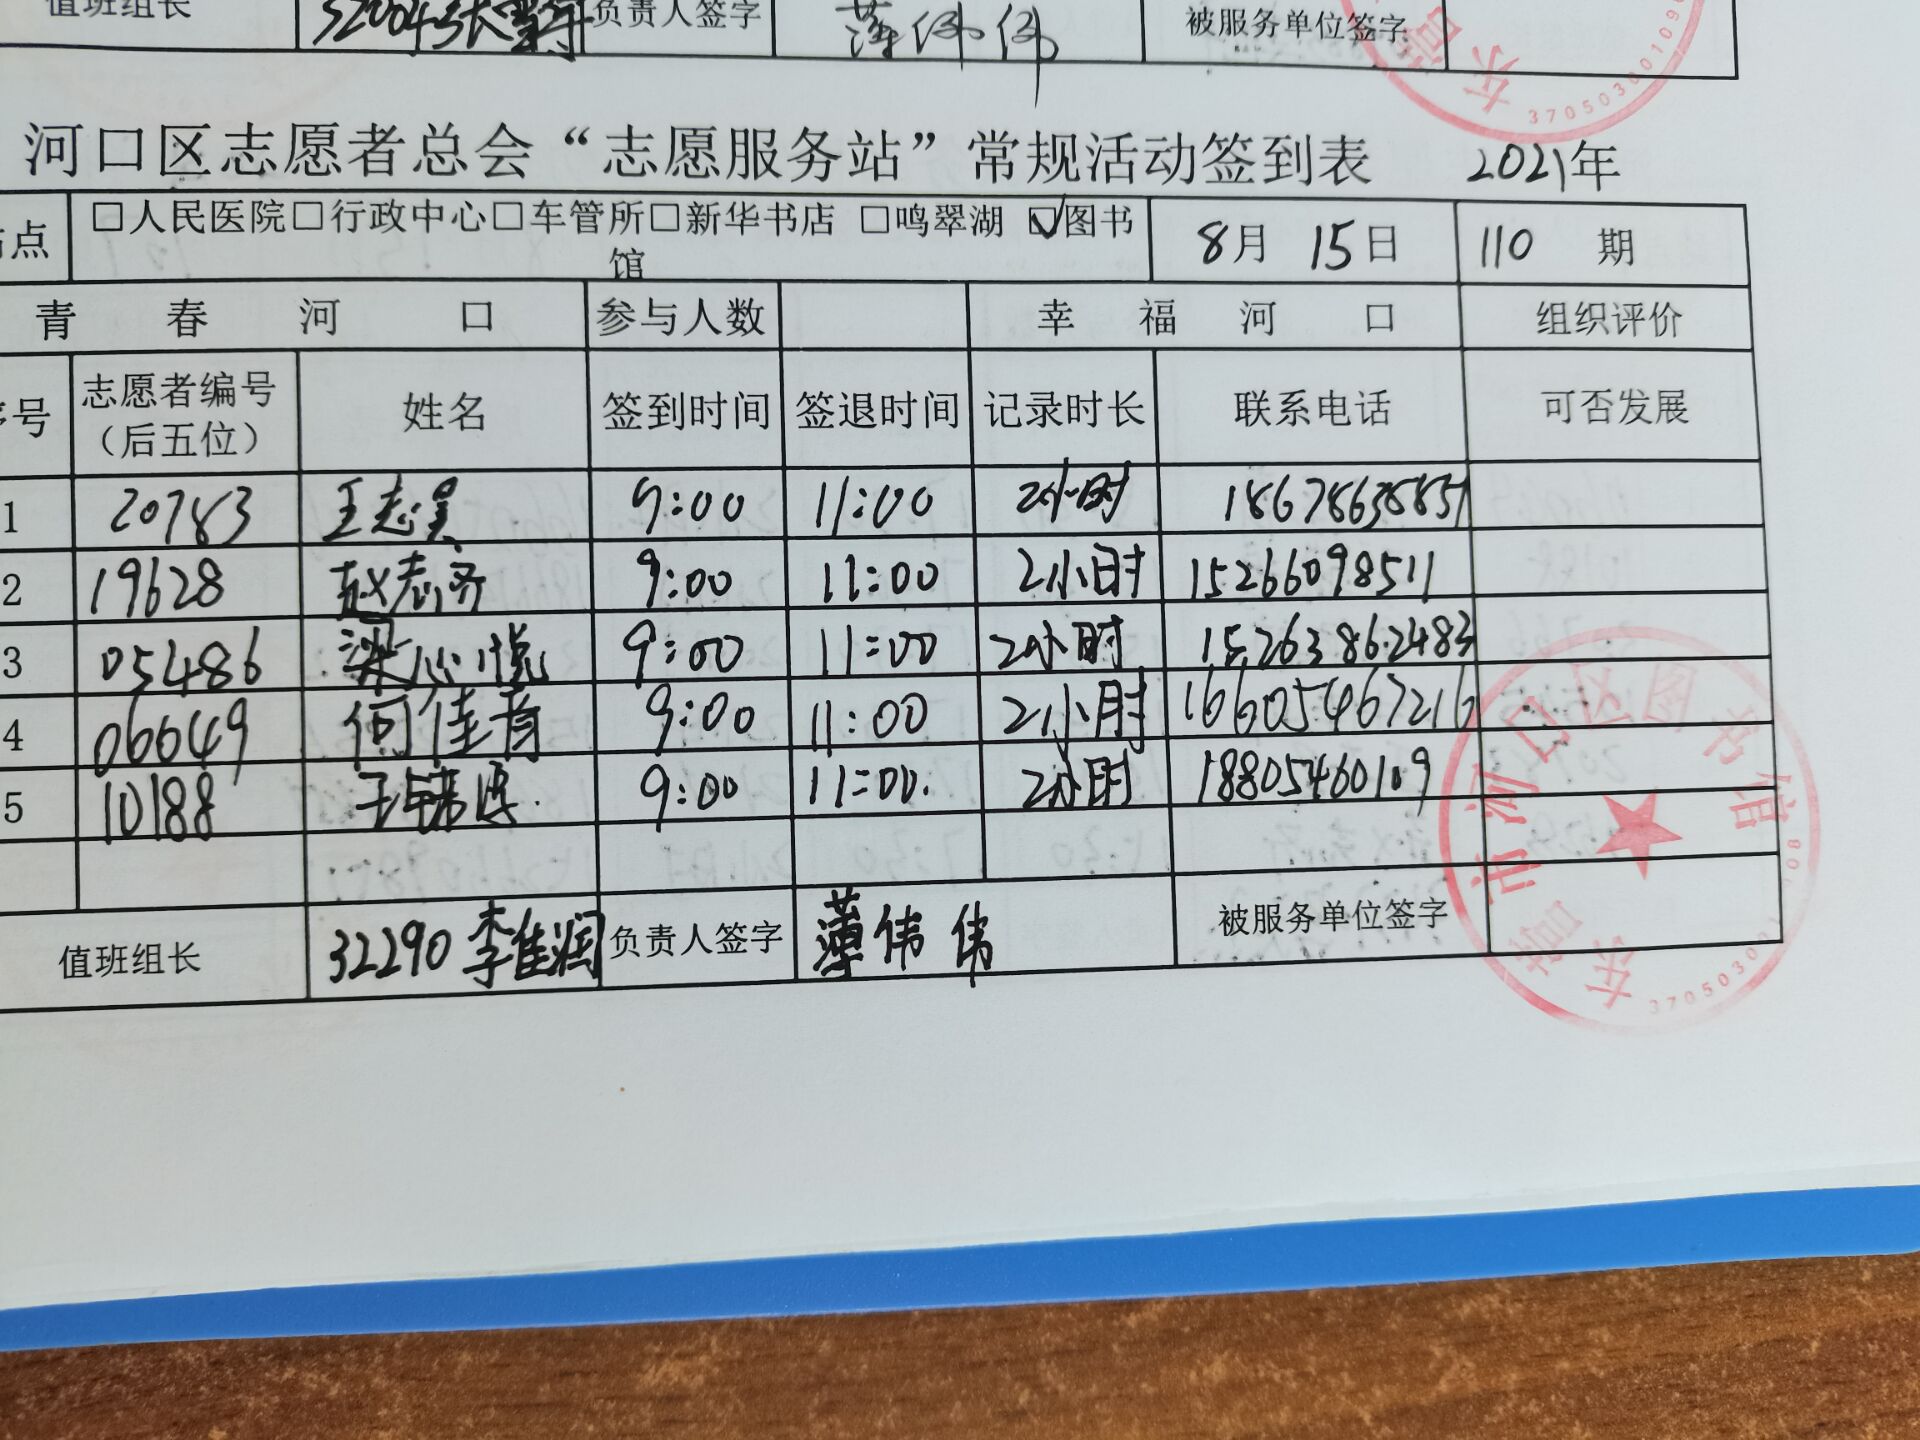 值班组长 负责人签字 薄伟伟 被服务单位签字
河口区志愿者总会“志愿服务站”常规活动签到表 2021年
点 □人民医院□行政中心□车管所□新华书店 □鸣翠湖 ☑图书馆 8月 15日 110 期
青 春 河 口 参与人数 幸 福 河 口 组织评价
号 志愿者编号（后五位） 姓名 签到时间 签退时间 记录时长 联系电话 可否发展
1 20783 王志昊 9:00 11:00 2小时
2 19628 赵志齐 9:00 11:00 2小时 15266098511
3 05486 梁心悦 9:00 11:00 2小时 15263862483
4 06649 何佳 9:00 11:00 2小时 16605467216
5 10188 9:00 11:00. 2小时 18805460109
值班组长 32290 李佳润 负责人签字 薄伟伟 被服务单位签字
东营市河口区图书馆